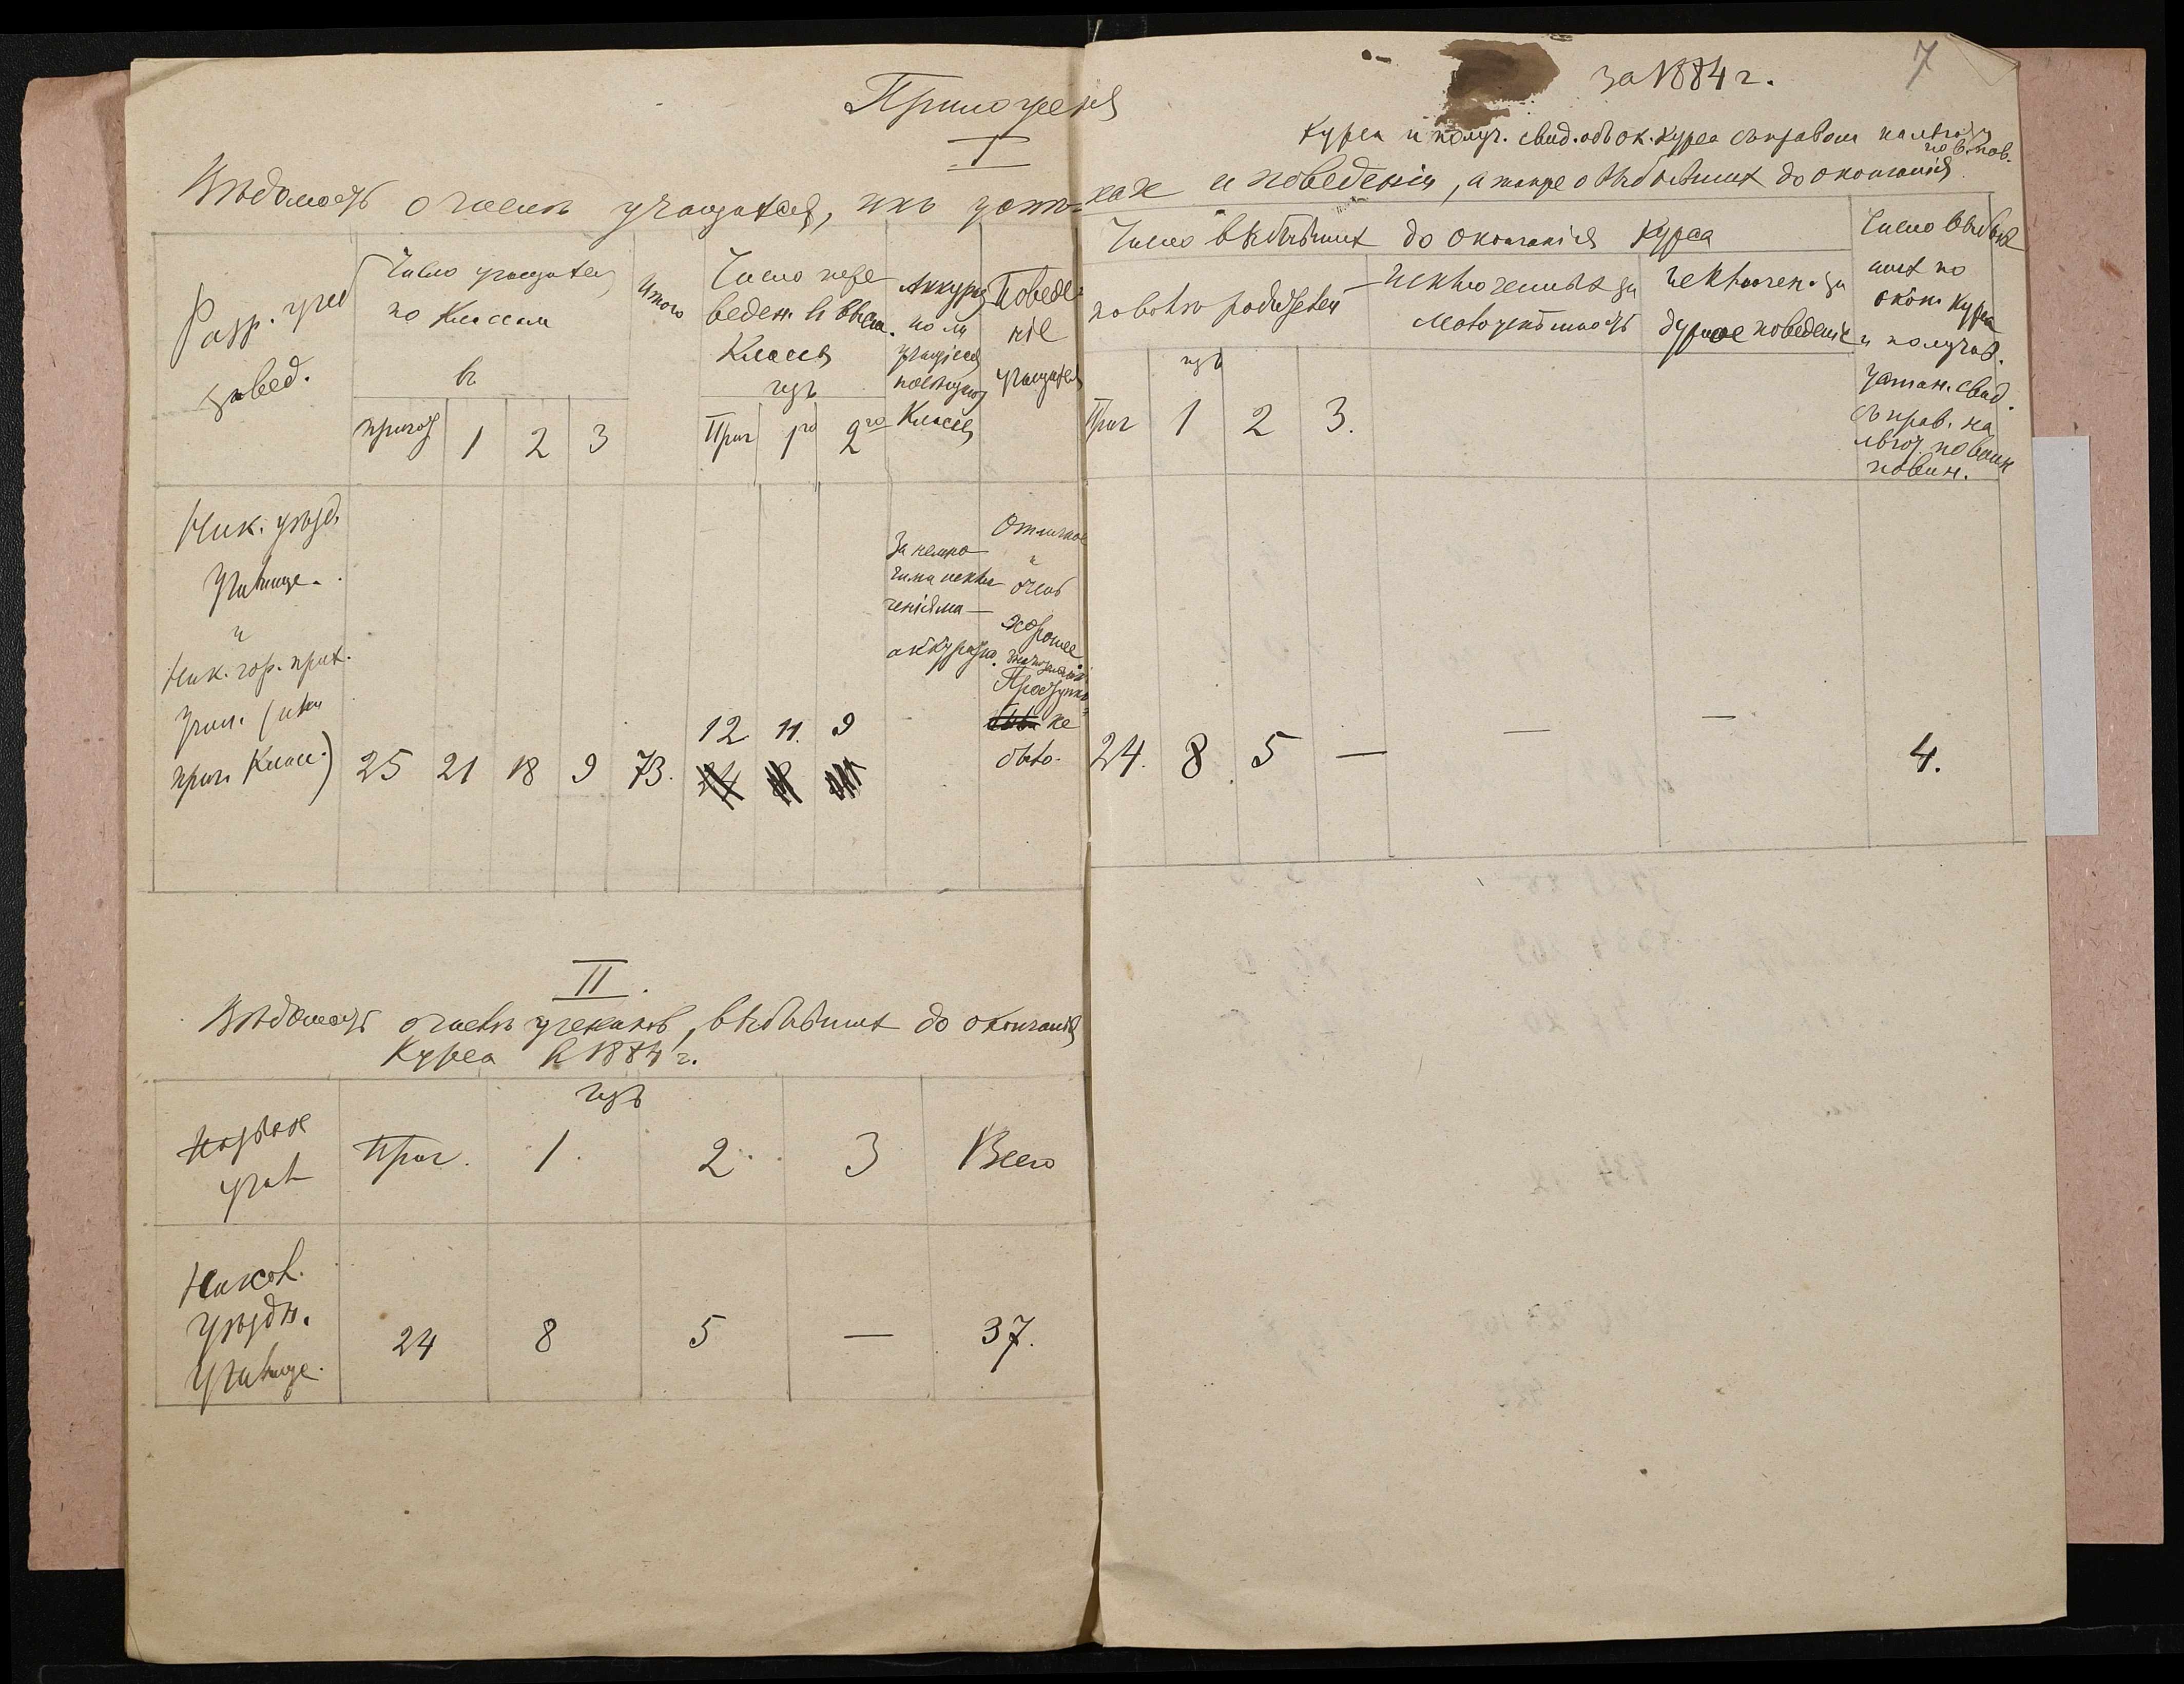 Приложенія
I
за 1884 г.
7
Вѣдомость о числѣ учащихся, ихъ успѣ-
хахъ и поведенія, а также о выбывшихъ до окончанія
курса и получ. свид. объ ок. курса съ правом на льготу
по в. пов.
Разр. учеб
завед.
Число учащихся
по классам
въ
пригот
1
2
3
Итого
Число пере
веден. въ высш.
классы
изъ
Приг
1го
2го
Аккурат
но ли
учащіеся
посѣщают
классы
Поведе-
ніе
учащихся
Число выбывших до окончанія курса
по волѣ родителей
изъ
Приг
1
2
3.
исключенных за
малоуспѣшность
исключен. за
дурное поведеніе
Число выбыв
ших по
оконч. курса
и получив.
устан. свид.
съ прав. на
льгот. по воин
повин.
Ник. уѣзд.
Училище.
и
Ник. гор. прих.
Учил.
приг. класс.)
25
21
18
9
73.
12
11.
9
За немно
гими исклю
ченіями
аккуратно.
Отличное
и
очень
хорошее
не
было.
24.
8
5
—
—
—
4.
II.
Вѣдомость о числѣ учеников, выбывших до окончанія
курса въ 1884 г.
изъ
Назван
учил
Приг.
1.
2.
3
Всего
Никол.
Уѣздн.
Училище.
24
8
5
—
37.